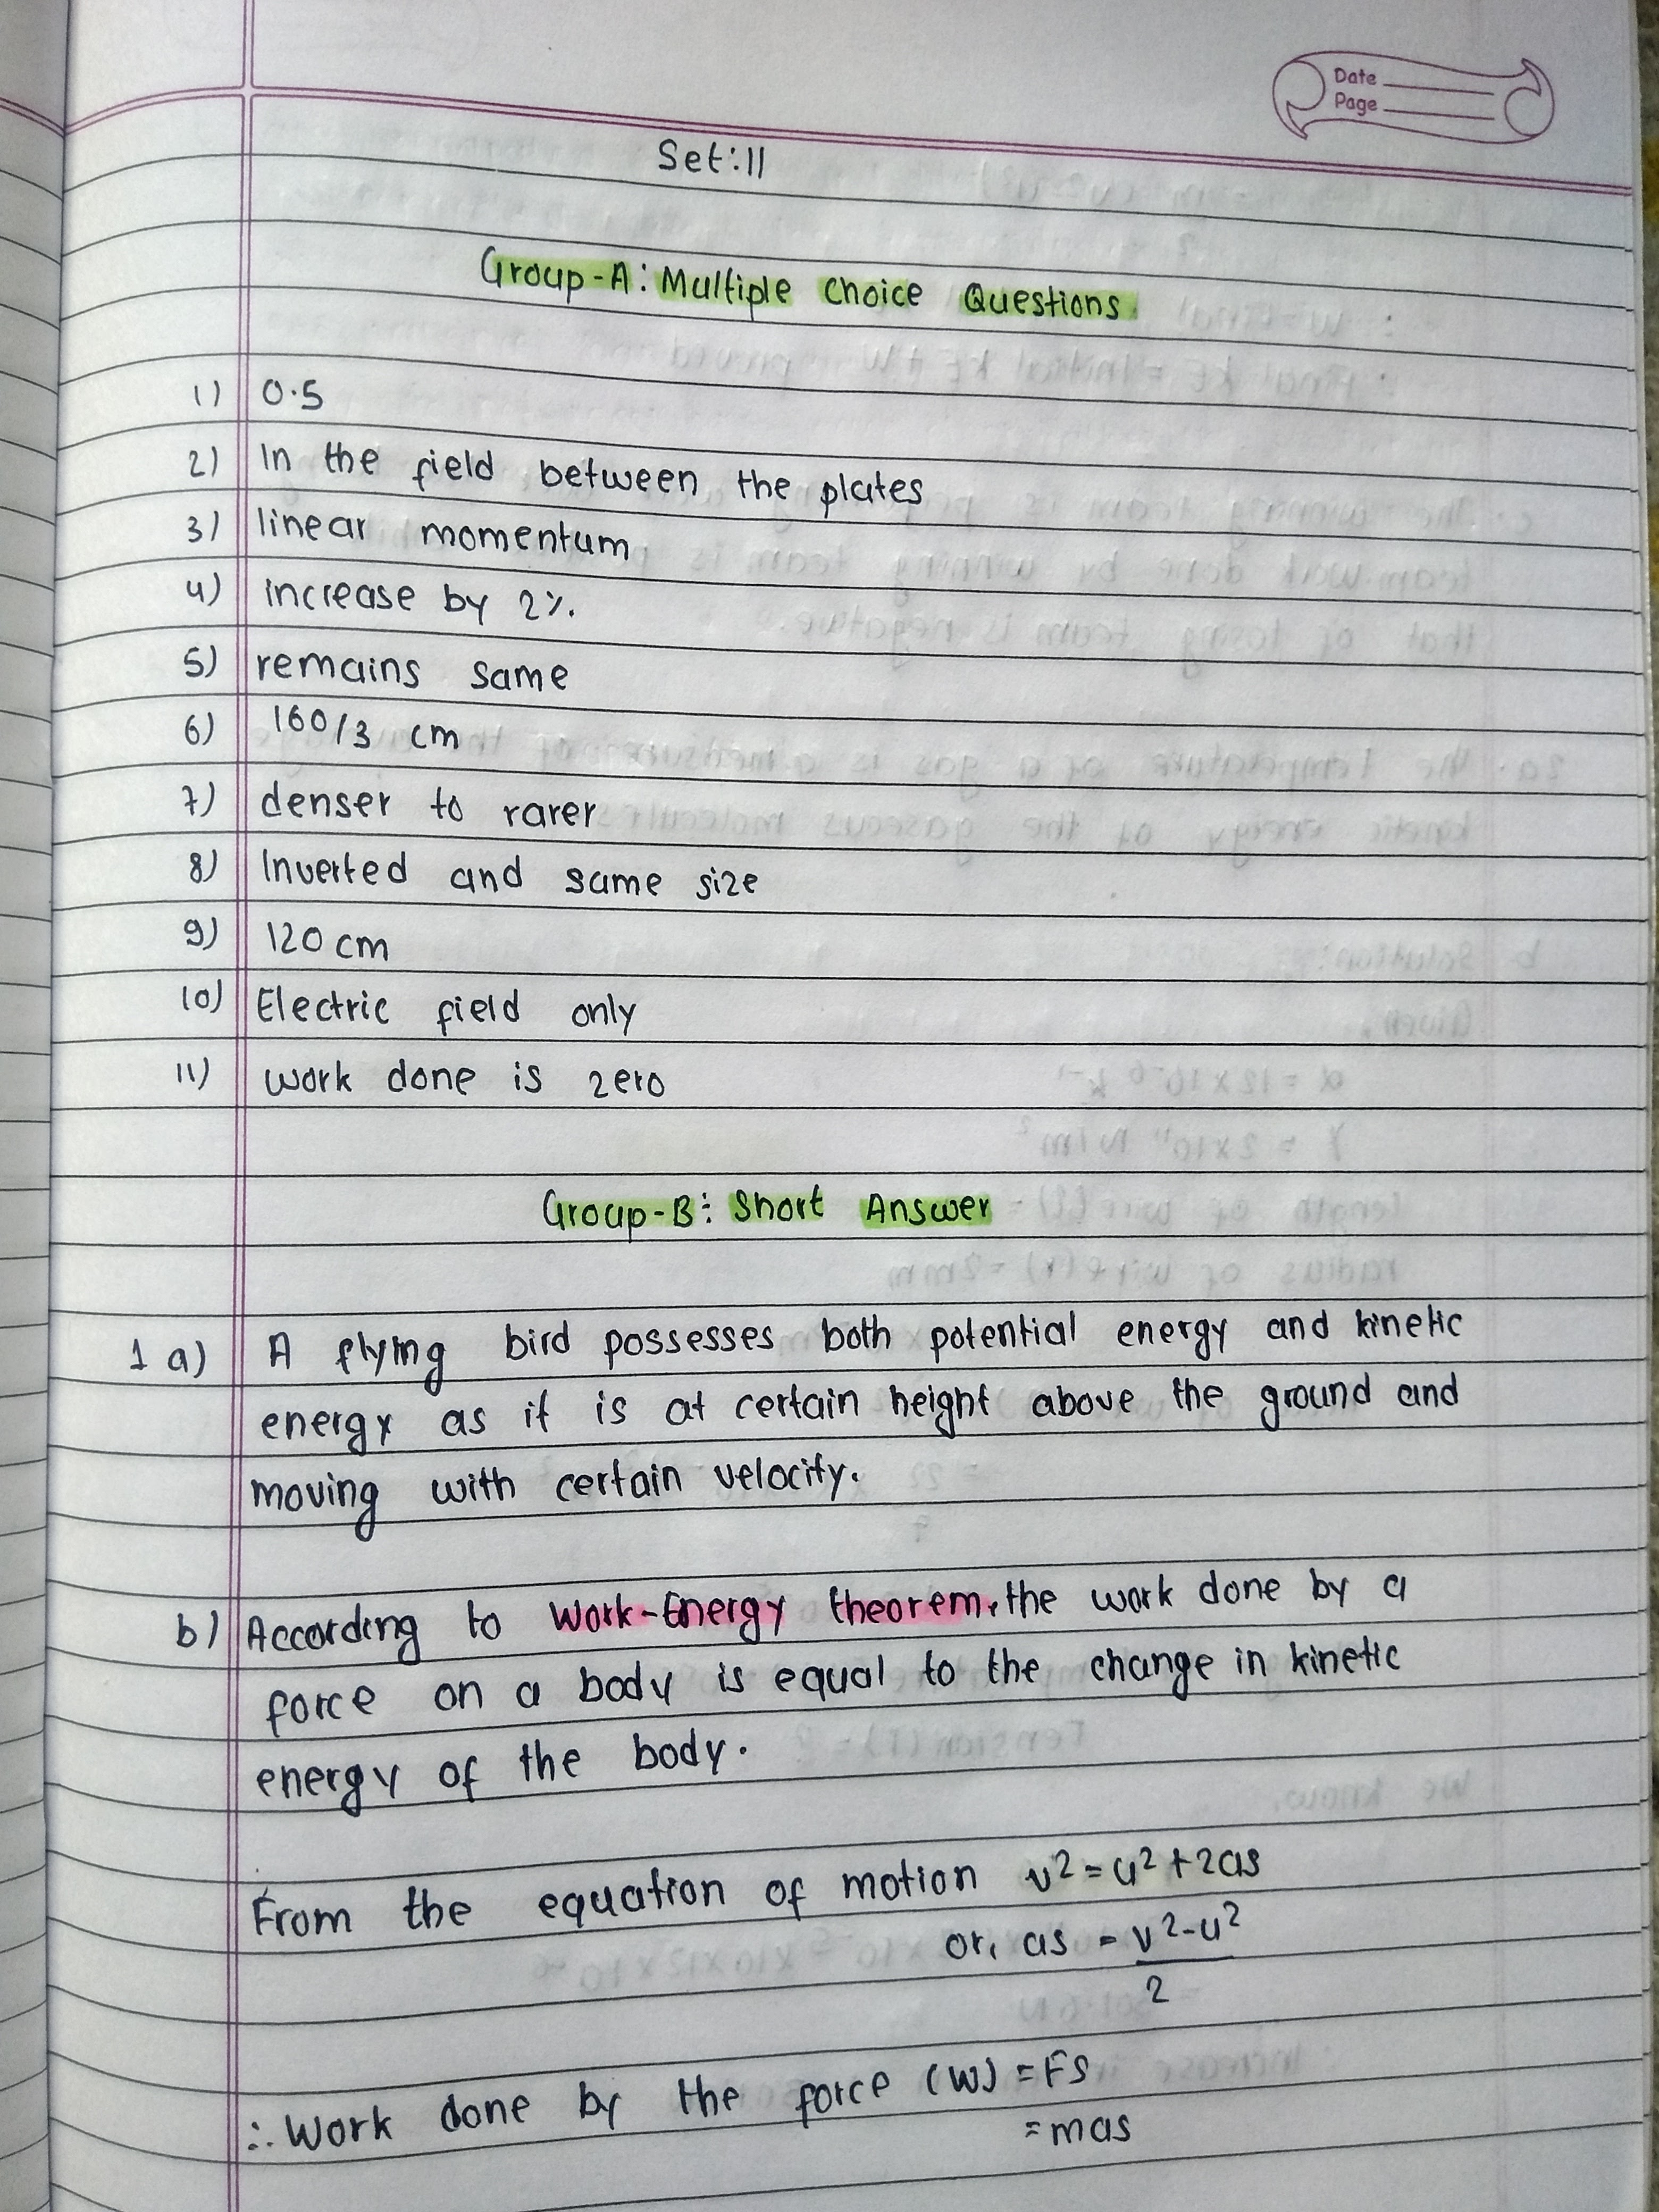 Date
Page
Set:11
Group-A: Multiple Choice Questions
1) 0.5
2) In the field between the plates
3) linear momentum
4) increase by 2%.
5) remains same
6) 160/3 cm
7) denser to rarer
8) Inverted and same size
9) 120 cm
10) Electric field only
11) work done is zero
Group-B: Short Answer
1 a) A flying bird possesses both potential energy and kinetic
energy as it is at certain height above the ground and
moving with certain velocity.
b) According to Work-Energy theorem, the work done by a
force on a body is equal to the change in kinetic
energy of the body.
From the equation of motion v²=u²+2as
or, as = v²-u²
2
∴ Work done by the force (W) = Fs
= mas